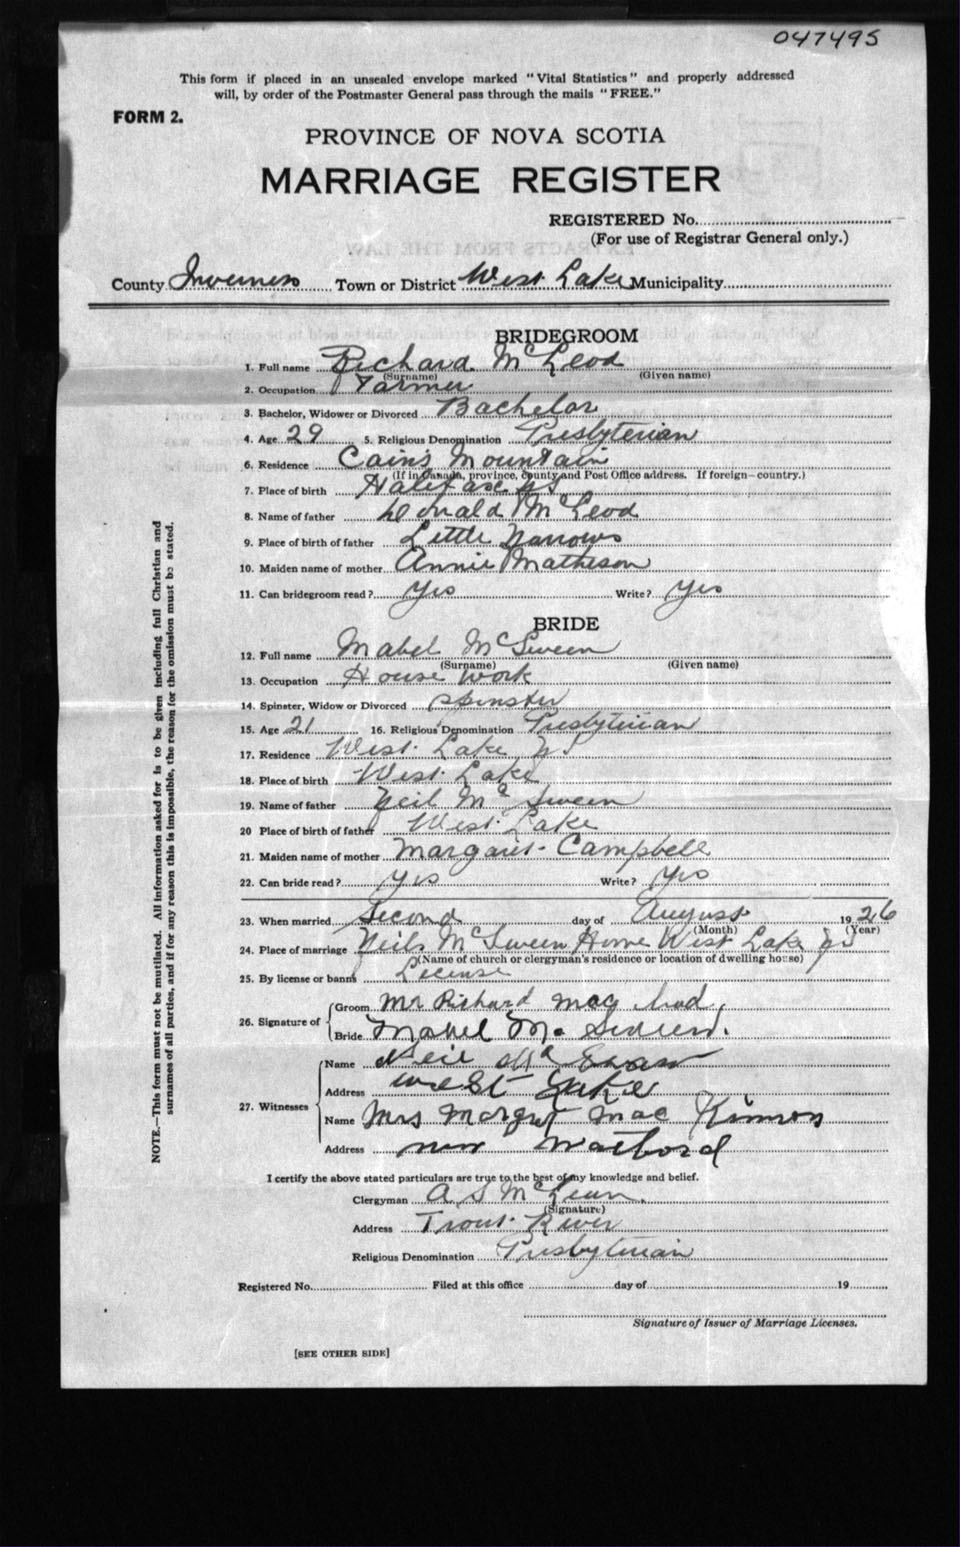 047495
This form if placed in an unsealed envelope marked "Vital Statistics" and properly addressed
will, by order of the Postmaster General pass through the mails "FREE."
FORM 2.
PROVINCE OF NOVA SCOTIA
MARRIAGE REGISTER
REGISTERED No.
(For use of Registrar General only.)
County Inverness Town or District West Lake Municipality
BRIDEGROOM
1. Full name Richard McLeod
(Surname) (Given name)
2. Occupation Farmer
3. Bachelor, Widower or Divorced Bachelor
4. Age 29 5. Religious Denomination Presbyterian
6. Residence Cains Mountain
(If in Canada, province, county and Post Office address. If foreign—country.)
7. Place of birth Halifax NS
8. Name of father Donald McLeod
9. Place of birth of father Little Narrows
10. Maiden name of mother Annie Matheson
11. Can bridegroom read? Yes Write? Yes
BRIDE
12. Full name Mabel McSween
(Surname) (Given name)
13. Occupation House Work
14. Spinster, Widow or Divorced Spinster
15. Age 21 16. Religious Denomination Presbyterian
17. Residence West Lake NS
18. Place of birth West Lake
19. Name of father Neil McSween
20 Place of birth of father West Lake
21. Maiden name of mother Margaret Campbell
22. Can bride read? Yes Write? Yes
23. When married Second day of August 1926
(Month) (Year)
24. Place of marriage Neils McSween Home West Lake NS
(Name of church or clergyman's residence or location of dwelling house)
25. By license or banns License
26. Signature of Groom Mr Richard Mac Leod
Bride Mabel Mc Sween.
27. Witnesses Name Neil Mc
Address West Lake
Name Mrs Margret Mac Kinnon
Address
I certify the above stated particulars are true to the best of my knowledge and belief.
Clergyman A S McLean
(Signature)
Address Trout River
Religious Denomination Presbyterian
Registered No. Filed at this office day of 19
Signature of Issuer of Marriage Licenses.
[SEE OTHER SIDE]
NOTE.—This form must not be mutilated. All information asked for is to be given including full Christian and
surnames of all parties, and if for any reason this is impossible, the reason for the omission must be stated.